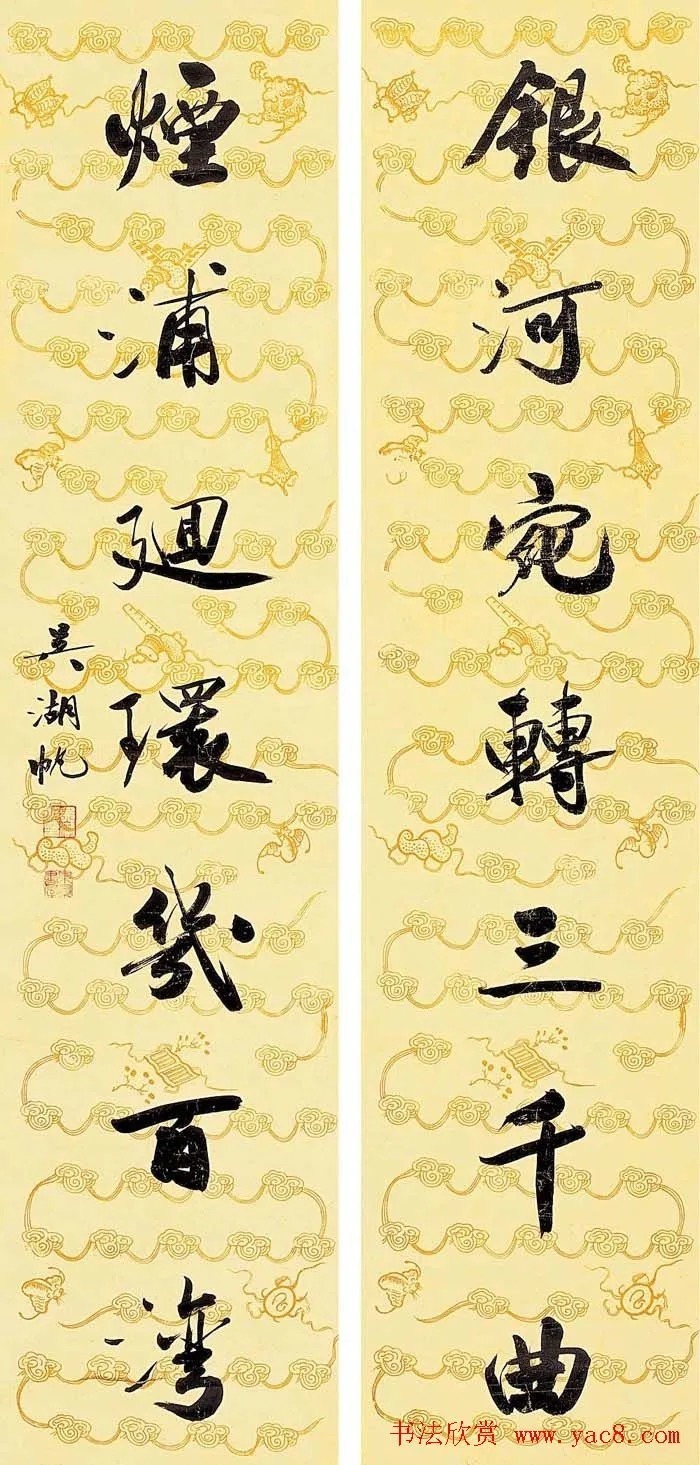 銀河宛轉三千曲
煙浦廻環幾百灣
吳湖帆
书法欣赏 www.yac8.com